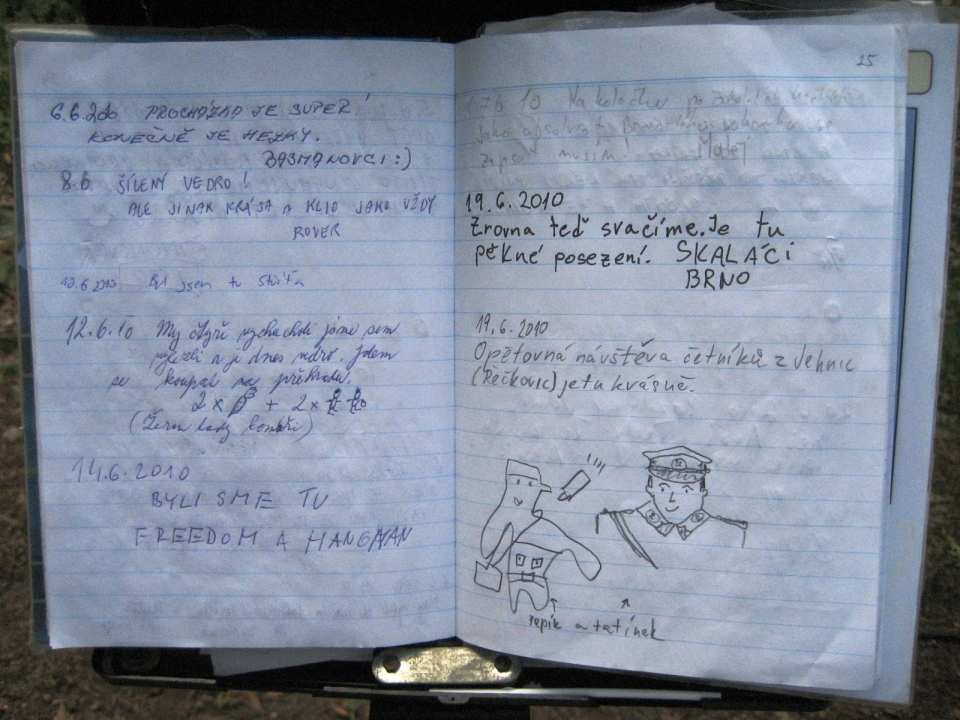 6.6.2010 PROCHÁZKA JE SUPER!
KONEČNĚ JE HEZKY.
BAŠMANOVCI :)
8.6. ŠÍLENÝ VEDRO!
ALE JINAK KRÁSA A KLID JAKO VŽDY
ROVER
10.6.2010 Byl jsem tu
12.6.10 My čtyři jsme sem
a je dnes vedro. Jdem
se koupat na přehradu.
2x + 2x
(Žerou tady komáři)
14.6.2010
BYLI SME TU
FREEDOM A HANGMAN
25
17.6.10 Na kole
se
zapsat musím. Matěj
19.6.2010
Zrovna teď svačíme. Je tu
pěkné posezení. SKALÁCI
BRNO
19.6.2010
Opětovná návštěva četníků z Jehnic
(Řečkovic) je tu krásně.
pepík a tatínek